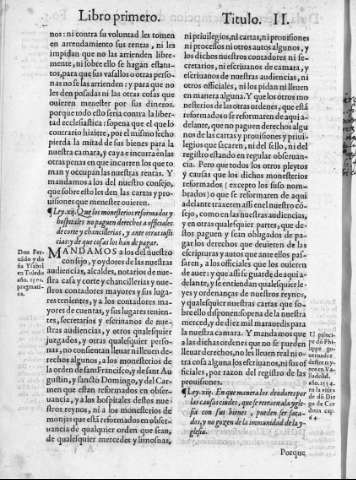 Libro primero.
Titulo. II.
nos: ni contra su voluntad les tomen
en arrendamiento sus rentas, ni les
impidan que no las arrienden libre-
mente, ni sobre ello se hagan estatu-
tos, para que sus vasallos o otras perso-
nas no se las arrienden: y para que no
les den posadas ni las otras cosas que
ouieren menester por sus dineros.
por que todo ello seria contra la liber-
tad ecclesiastica: so pena que el que lo
contrario hiziere, por el mismo fecho
pierda la mitad de sus bienes para la
nuestra camara, y caya e incurra en las
otras penas en que incurren los que to-
man y occupan las nuestras rentas. Y
mandamos a los del nuestro consejo,
que sobre esto les den las cartas y pro-
uisiones que menester ouieren.
¶Ley.xij. Que los monesterios reformados y
hospitales no paguen derechos a officiales
de corte y chancillerias, y ante otras justi-
cias: y de que cosas los han de pagar.
Don Fer-
nando y do-
ña Ysabel
en Toledo
año. 1502.
pregmati-
ca.
MANDAMOS a los del nuestro
consejo, y oydores de las nuestras
audiencias, alcaldes, notarios de nue-
stra casa y corte y chancillerias y nue-
stros contadores mayores y sus luga-
res tenientes, y a los contadores mayo-
res de cuentas, y sus lugares tenien-
tes, secretarios y escriuanos de nue-
stras audiencias, y otros qualesquier
juzgados, y otras qualesquier perso-
nas, no consientan lleuar ni lleuen de-
rechos algunos, a los monesterios de
la orden de san Francisco, y de sant Au-
gustin, y sancto Domingo, y del Car-
men que estan reformados en obser-
uancia, y a los hospitales destos nue-
stros reynos, ni a los monesterios de
monjas que està reformados en obser-
uancia de qualquier orden que sean,
de qualesquier mercedes y limosnas,
ni priuilegios, ni cartas, ni prouisiones
ni processos ni otros autos algunos, y
los dichos nuestros contadores ni se-
cretarios, ni escriuanos de camara, y
escriuanos de nuestras audiencias, ni
otros officiales, ni los pidan ni lleuen
en manera alguna. Y que los otros mo-
nesterios de las otras ordenes, que està
reformados o se reformaren de aqui a-
delante, que no paguen derechos algu-
nos de las cartas y prouisiones y priui-
legios que sacaren, ni del sello, ni del
registro estando en regular obseruan-
cia. Pero que todos los otros pleytos
y causas que los dichos monesterios
reformados (excepto los suso nom-
brados) o que se reformaren de aqui
adelante traxeren assi en el nuestro cõ-
sejo, como en las nuestras audiencias,
y en otras qualesquier partes, que de-
stos paguen y sean obligados de pa-
gar los derechos que deuieren de las
escripturas y autos que ante ellos pas-
saren, a los officiales que los ouieren
de auer: y que assi se guarde de aqui a-
delante, y se entiendan qualesquier le-
yes y ordenanças de nuestros reynos,
y qualesquier nuestras cartas que so-
bre ello disponen: so pena de la nuestra
merced, y de diez mil marauedis para
la nuestra camara. Y mandamos que
a las dichas ordenes que no se pueden
lleuar derechos, no les lleuen real ni o-
tra cosa alguna los escriuanos, ni sus of
ficiales, por razon del registro de las
prouisiones.
El princi-
pe dõ Phi-
lippe go-
uernador
destos rey-
nos en Va-
lladolid.
año. 1554.
en la visita
de dõ Die-
go de Cor-
doua cap.
64.
¶Ley.xiij. En que manera los deudores por
las causas ciuiles, que se retraen a la ygle-
sia con sus bienes, pueden ser saca-
dos, y no gozen de la immunidad de la y-
glesia.
Porque